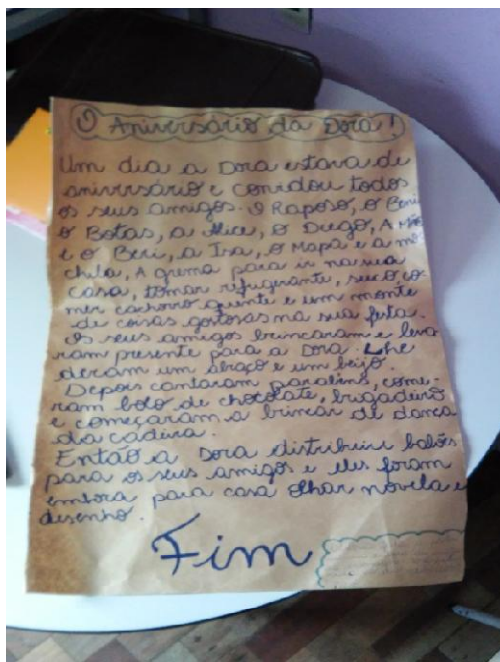 O Aniversário da Dora!
Um dia a Dora estava de
aniversário e convidou todos
os seus amigos. O Raposo, o Beni
o Botas, a Alice, o Diego, A Mãe
e o Beri, a Isa, o Mapa e a mo
chila, A para ir na sua
casa, tomar refrigerante, suco, co-
mer cachorro quente e um monte
de coisas gostosas na sua festa.
Os seus amigos brincaram e leva
ram presente para a Dora. Lhe
deram um abraço e um beijo.
Depois cantaram parabéns, come-
ram bolo de chocolate, brigadeiro
e começaram a brincar de dança
da cadeira.
Então a Dora distribuiu balões
para os seus amigos e eles foram
embora para casa olhar novela e
desenho.
Fim